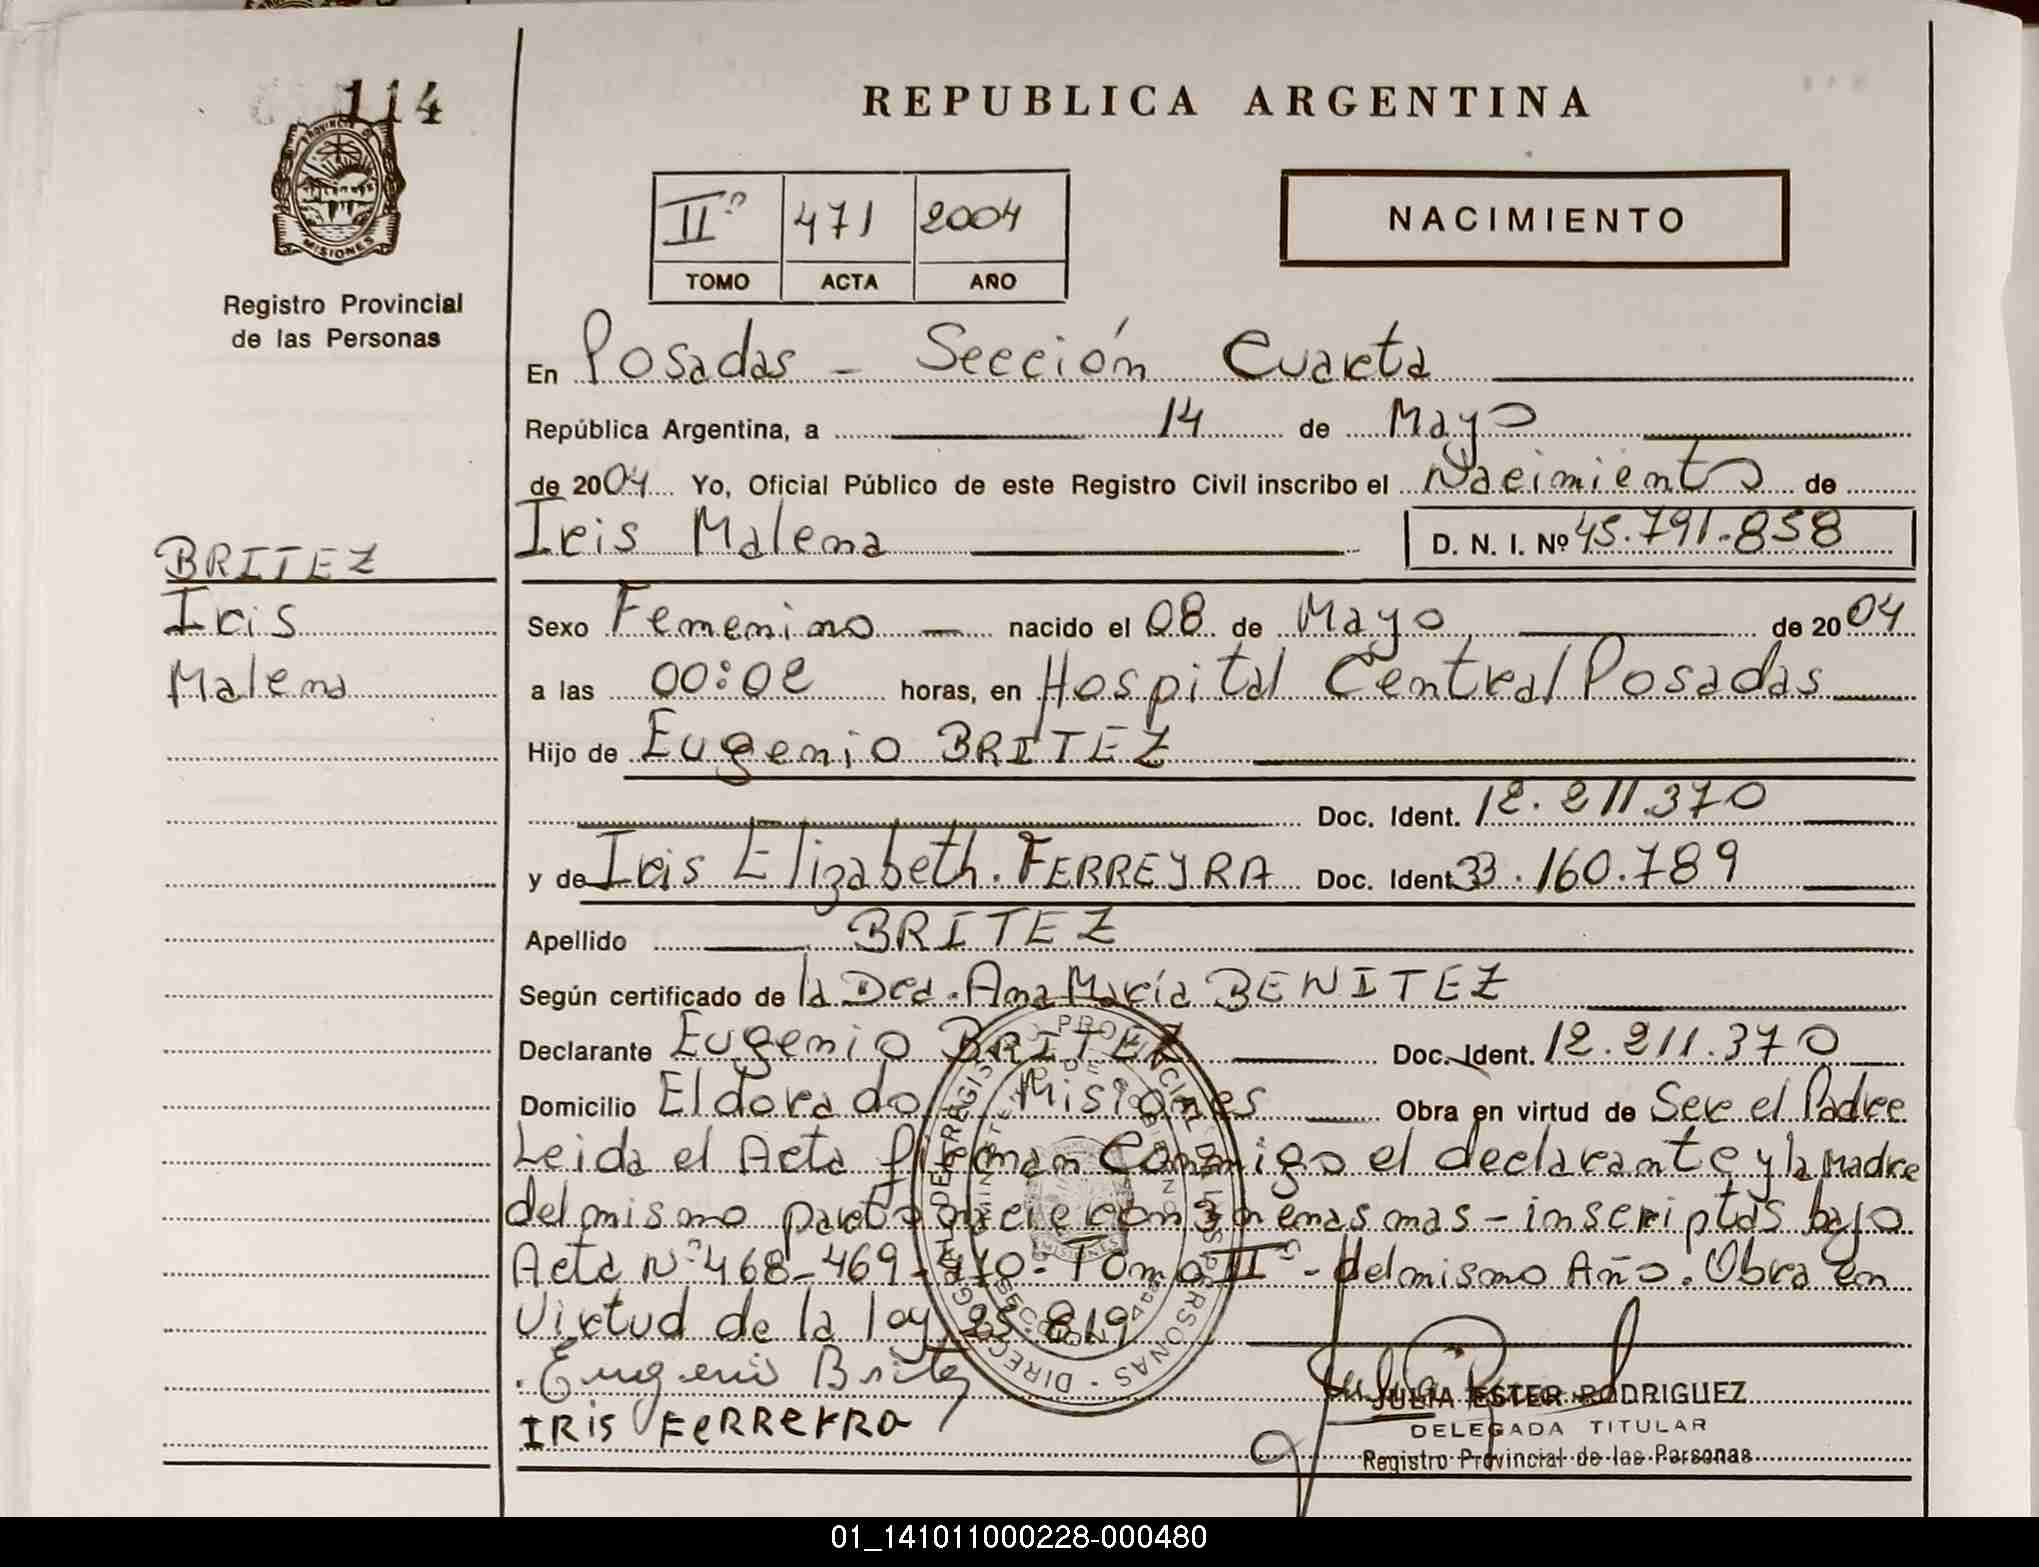 114
PROVINCIA DE
MISIONES
Registro Provincial
de las Personas
REPUBLICA ARGENTINA
IIº 471 2004
TOMO ACTA AÑO
NACIMIENTO
En Posadas - Sección Cuarta
República Argentina, a 14 de Mayo
de 2004 Yo, Oficial Público de este Registro Civil inscribo el Nacimiento de
Iris Malena D. N. I. Nº 45.791.858
BRITEZ
Iris
Malena
Sexo Femenino — nacido el 08 de Mayo de 2004
a las 00:02 horas, en Hospital Central Posadas
Hijo de Eugenio BRITEZ
Doc. Ident. 12.211.370
y de Iris Elizabeth. FERREYRA Doc. Ident. 33.160.789
Apellido BRITEZ
Según certificado de la Dra. Ana María BENITEZ
Declarante Eugenio BRITEZ Doc. Ident. 12.211.370
Domicilio Eldorado Misiones Obra en virtud de Ser el Padre
Leida el Acta firman Conmigo el declarante y la Madre
del mismo parto nacieron 3 nenas mas - inscriptas bajo
Acta Nº 468-469-470- Tomo IIº - del mismo Año. Obra en
Virtud de la ley 25.819
Eugenio Britez
IRIS FeRRerRa
JULIA ESTER RODRIGUEZ
DELEGADA TITULAR
Registro Provincial de las Personas
01_141011000228-000480